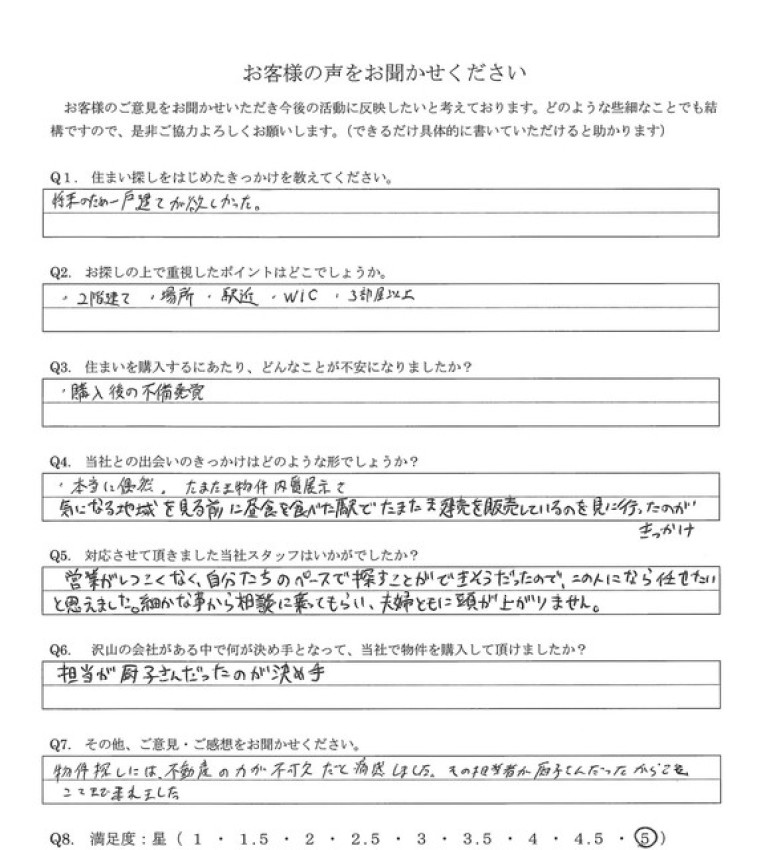 お客様の声をお聞かせください
お客様のご意見をお聞かせいただき今後の活動に反映したいと考えております。どのような些細なことでも結
構ですので、是非ご協力よろしくお願いします。(できるだけ具体的に書いていただけると助かります)
Q1. 住まい探しをはじめたきっかけを教えてください。
将来のため一戸建てが欲しかった。
Q2. お探しの上で重視したポイントはどこでしょうか。
・2階建て ・場所 ・駅近 ・WIC ・3部屋以上
Q3. 住まいを購入するにあたり、どんなことが不安になりましたか?
・購入後の不備発覚
Q4. 当社との出会いのきっかけはどのような形でしょうか?
・本当に偶然。たまたま物件内覧展示て
気になる地域を見る前に昼食を食べた駅でたまたま 販売しているのを見に行ったのが
きっかけ
Q5. 対応させて頂きました当社スタッフはいかがでしたか?
営業がしつこくなく、自分たちのペースで探すことができそうだったので、この人になら任せたい
と思えました。細かな事から相談に乗ってもらい、夫婦ともに頭が上がりません。
Q6. 沢山の会社がある中で何が決め手となって、当社で物件を購入して頂けましたか?
担当が厨子さんだったのが決め手
Q7. その他、ご意見・ご感想をお聞かせください。
物件探しには、不動産の力が不可欠だと痛感しました。その担当者が厨子さんだったからこそ
ここまで来れました
Q8. 満足度:星( 1 ・ 1.5 ・ 2 ・ 2.5 ・ 3 ・ 3.5 ・ 4 ・ 4.5 ・ 5 )